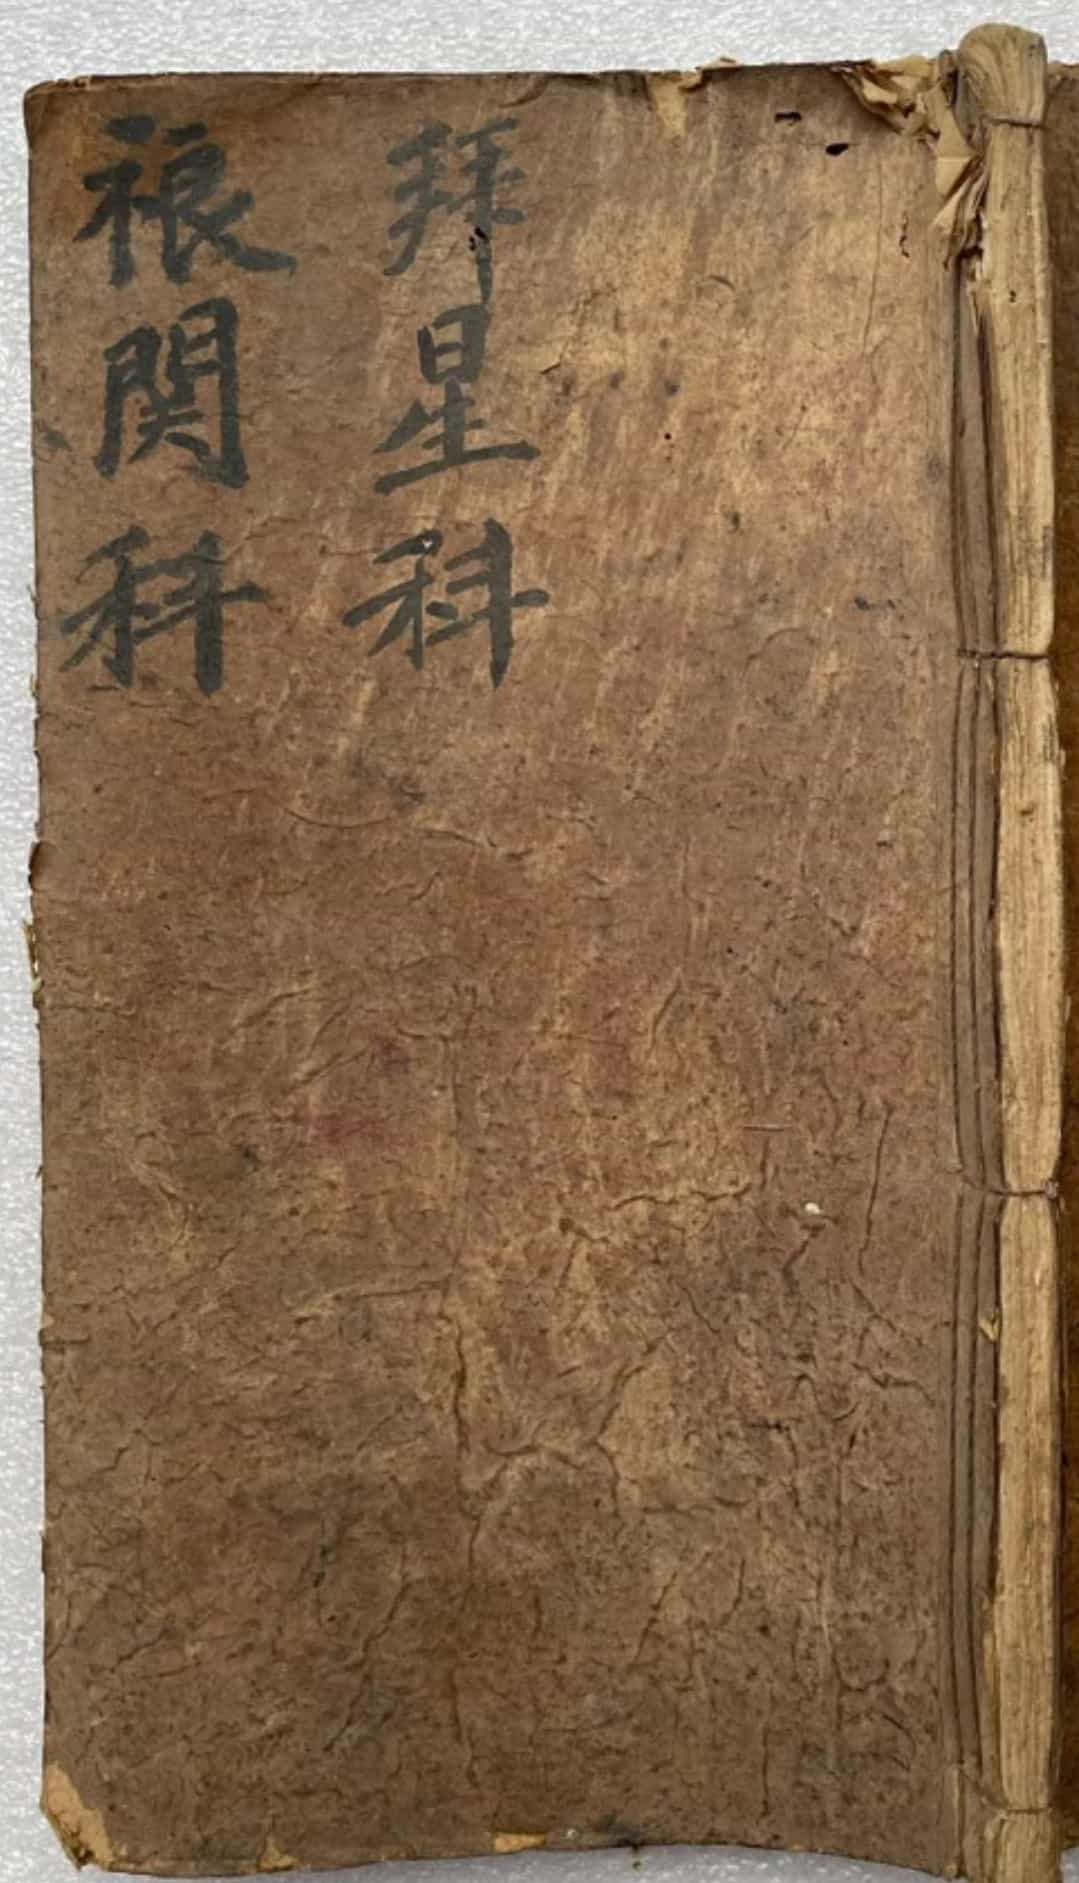 拜星科
禳関科